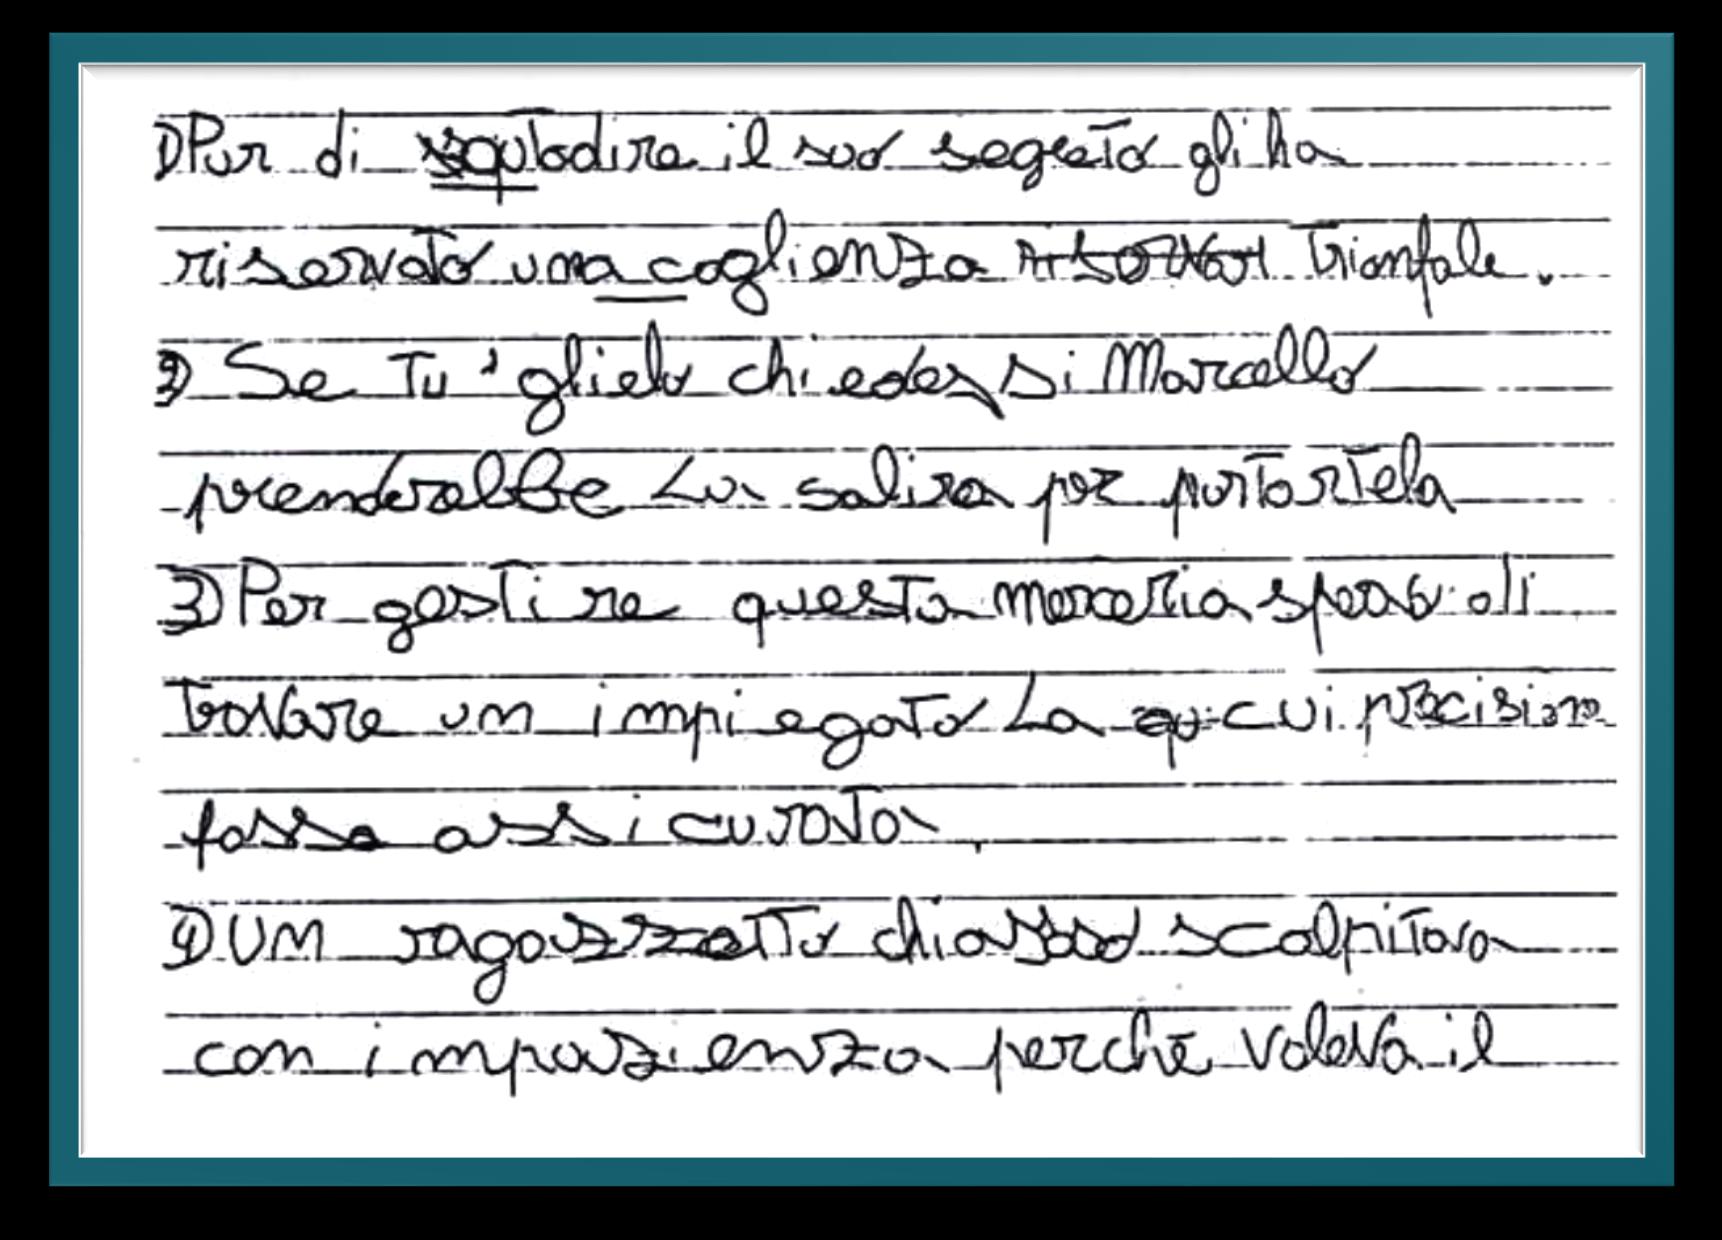 1) Pur di squlodire il suo segreto gli ha
riservato una coglienza trionfale.
2) Se tu glielo chiedessi Marcello
prenderebbe la salira per portortela
3) Per gestire questa merceria sperav di
trovare un impiegato la cui precisione
fosse assicurata,
4) UM ragazzetto chiassoso scalpitava
con impazienza perche voleva il